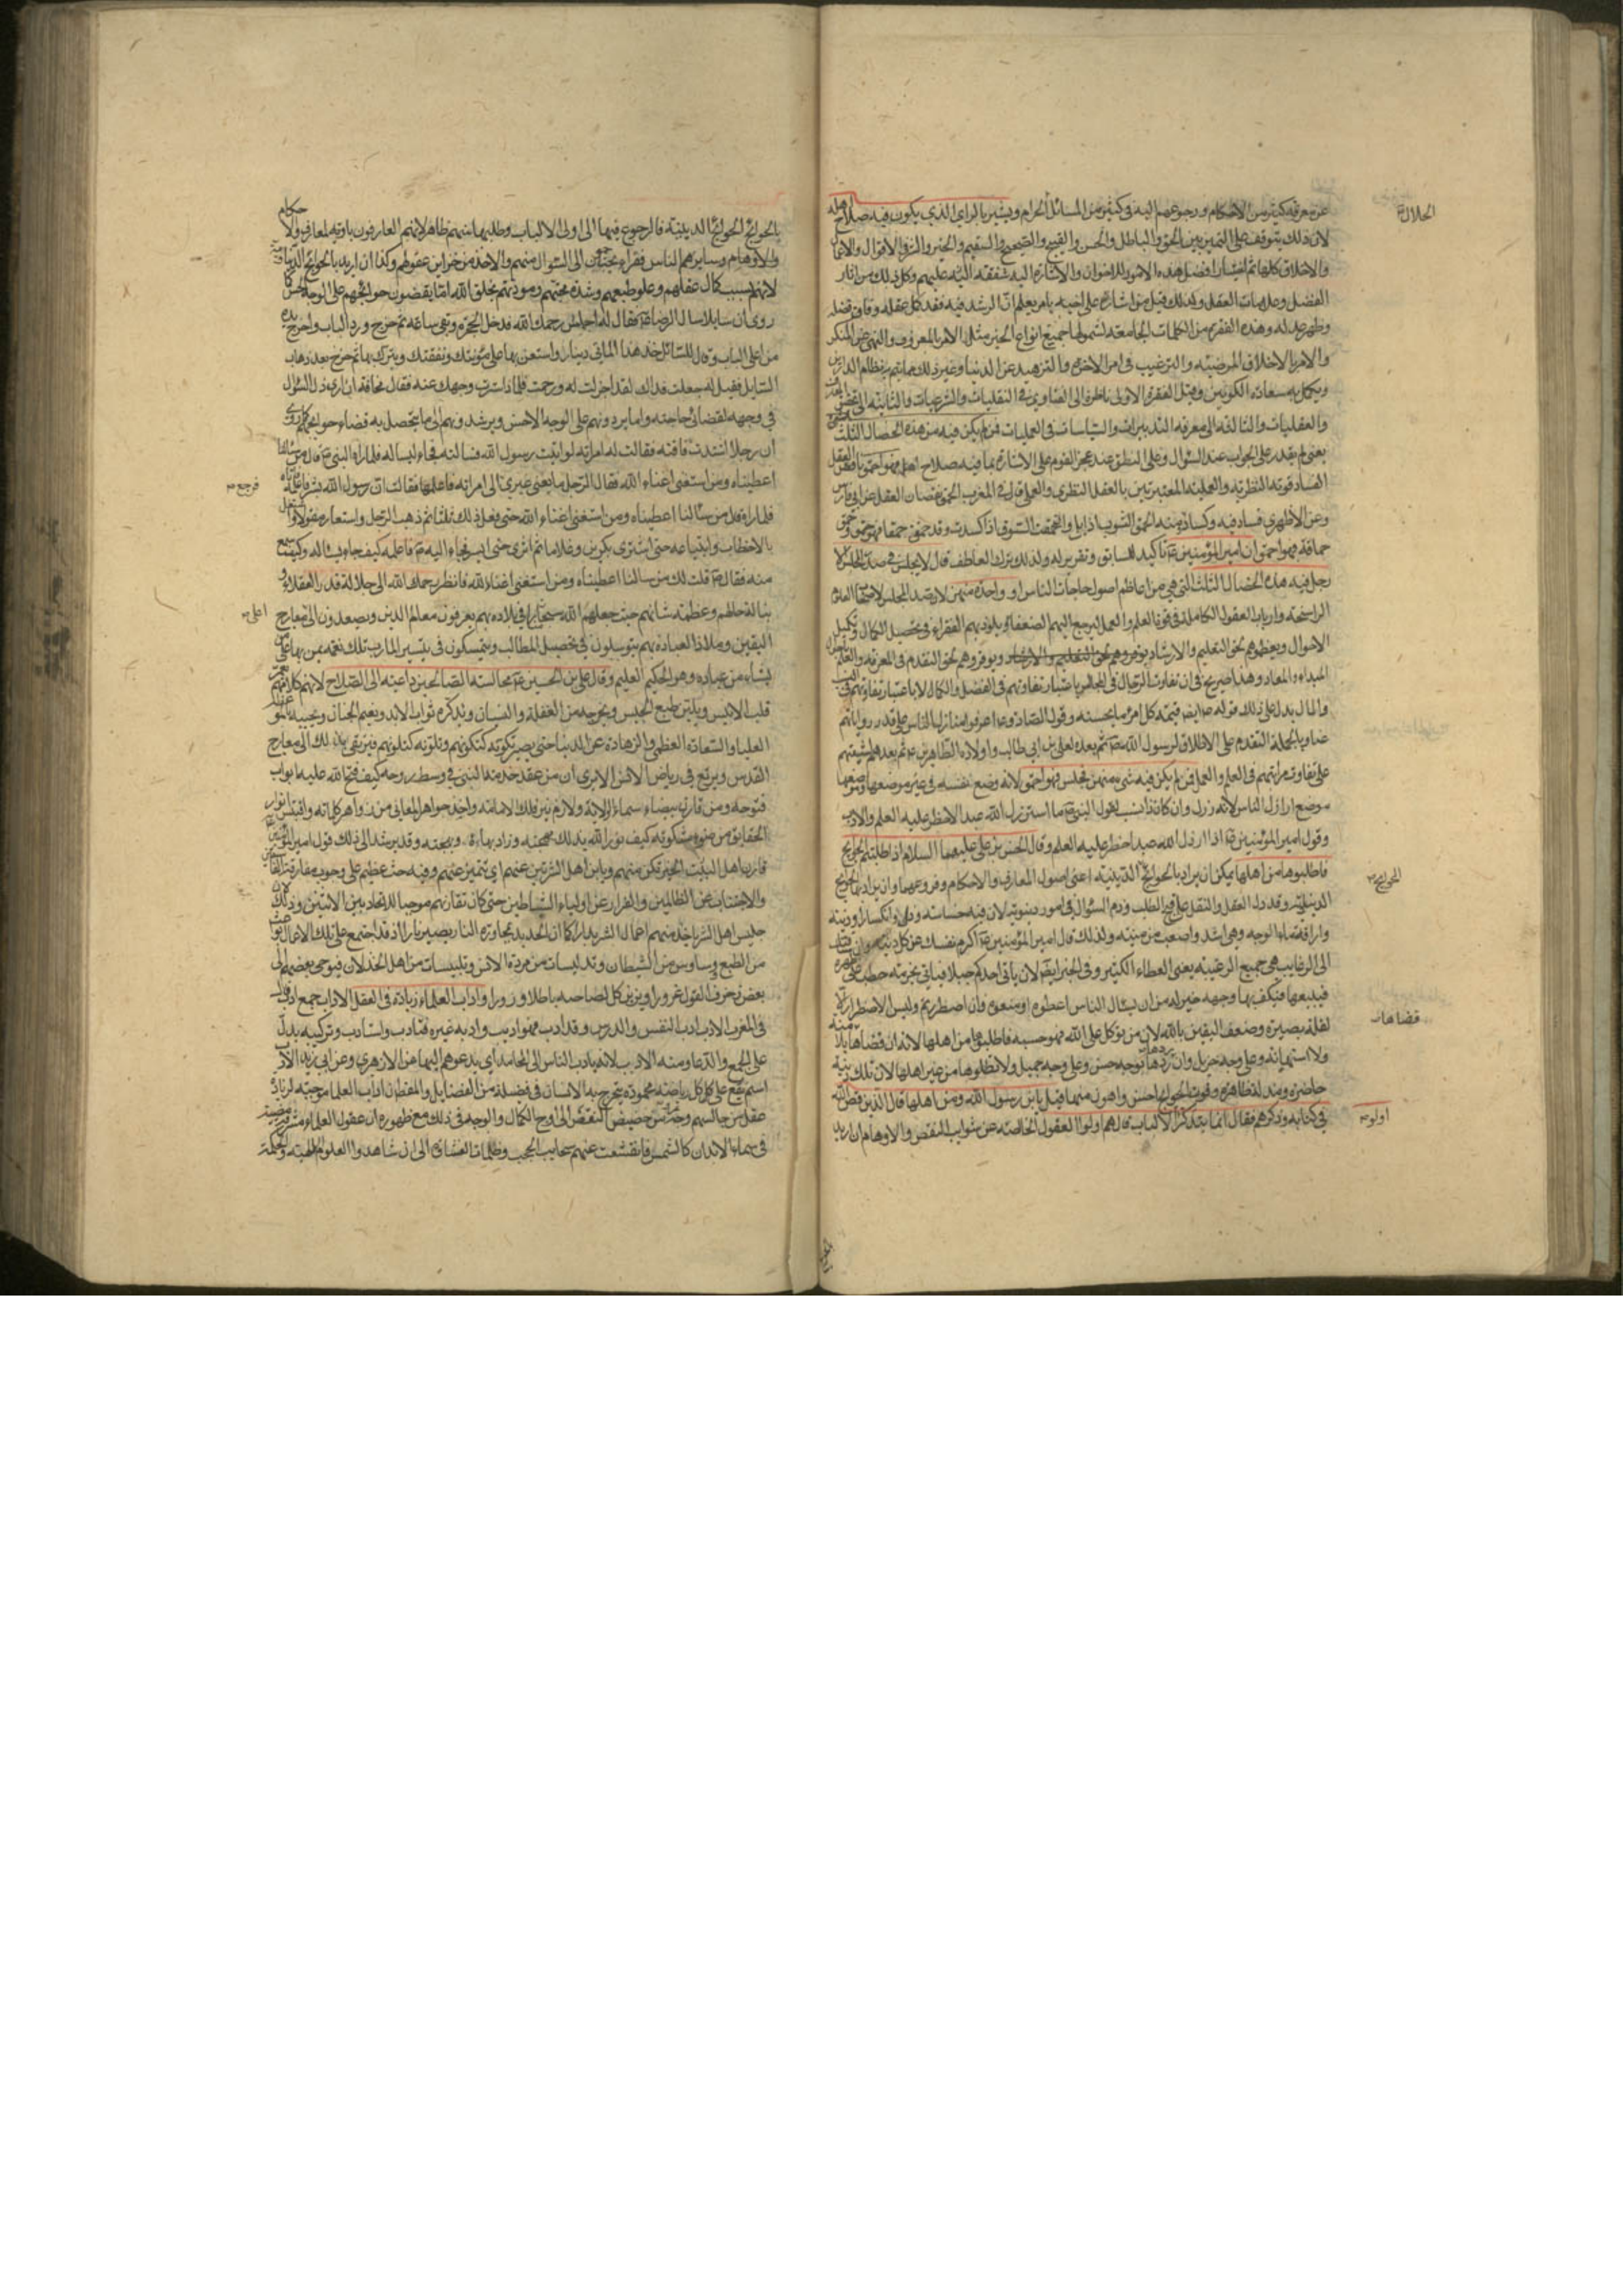 عن معرفة كثير من الاحكام ورجوعهم اليه في كثير من المسائل الحرام ويشير بالراي الذي يكون فيه صلاح اهله
الحلال و
لان ذلك يتوقف على التميز بين الحق والباطل والحسن والقبيح والصحيح والسقيم والخير والشر والاقوال والاعمال
والاخلاق كلها ثم اختيار افضل هذه الامور للاخوان والاشارة اليه شفقة عليهم وكل ذلك من اثار
الفضل وعلامات العقل ولذلك قيل من اشار على اخيه بامر يعلم ان الرشد فيه فقد كمل عقله وفاق فضله
وظهر عدله وهذه الفقرة من الكلمات الجامعة لشمولها جميع انواع الخير مثل الامر بالمعروف والنهي عن المنكر
والامر بالاخلاق المرضية والترغيب في امر الاخرة والتزهيد عن الدنيا وغير ذلك مما يتم به نظام الدارين
ويكمل به سعادة الكونين وقيل الفقرة الاولى ناظرة الى الفتاوى في النقليات والشرعيات والثانية الى
والعقليات والثالثة الى معرفة التدبيرات والسياسات في العمليات فمن لم يكن فيه من هذه الخصال الثلث
يعني لم يقدر على الجواب عند السؤال وعلى النطق عند عجز القوم وعلى الاشارة بما فيه صلاح اهله فهو احمق ناقص العقل
لفساد قوته النظرية والعملية المعتبرتين بالعقل النظري والعملي قال في المغرب الحمق نقصان العقل عن ابن فارس
وعن الازهري فساد فيه وكساد ومنه انحمق الثوب اذا بلي وانحمقت السوق اذا كسدت وقد حمق حمقا فهو حمق وحمق
حماقة فهو احمق ان امير المؤمنين ع تاكيد للسابق وتقرير له ولذلك ترك العاطف قال لا يجلس في صدر المجلس الا
رجل فيه هذه الخصال الثلث التي هي من اعاظم اصول حاجات الناس او واحدة منهن لان صدر المجلس
الراسخة وارباب العقول الكاملة في قوة العلم والعمل ليرجع اليهم الضعفاء ويلوذ بهم الفقراء في تحصيل الكمال وتكميل
الاحوال ويعظوهم بحق التعليم والارشاد ويوقروهم بحق التقدم في المعرفة والعلم
المبداء والمعاد وهذا صريح في ان تفاوت الرجال في المجالس باعتبار تفاوتهم في الفضل والكمال لا باعتبار تفاوتهم في
والمال يدل على ذلك قوله ع ايضا قيمة كل امرء ما يحسنه وقول الصادق ع اعرفوا منازل الناس على قدر رواياتهم
عنا وبالجملة التقدم على الاطلاق لرسول الله ص ثم بعده لعلي بن ابي طالب واولاده الطاهرين ع ثم بعدهم لشيعتهم
على تفاوت مراتبهم في العلم والعمل فمن لم يكن فيه شيء منهن فجلس فهو احمق لانه وضع نفسه في غير موضعها
موضع اراذل الناس لانه رذل وان كان ذا نسب لقول النبي ص ما استرذل الله عبدا الا حظر عليه العلم والادب
وقول امير المؤمنين ع اذا ارذل الله عبدا حظر عليه العلم وقال الحسن بن علي عليهما السلام اذا طلبتم الحوايج
فاطلبوها من اهلها يمكن ان يراد بالحوائج الدينية اعني اصول المعارف والاحكام وفروعهما وان يراد بها الحوايج
الحوايج
الدنيوية وقد دل العقل والنقل على قبح الطلب وذم السؤال في امور دنيوية لان فيه خساسة وذل وانكسارا ودنية
واراقة لماء الوجه وهي اشد واصعب من منية ولذلك قال امير المؤمنين ع اكرم نفسك عن كل دنية وان
الى الرغايب هي جميع الرغيبة يعني العطاء الكثير وفي الخبر ايضا لان ياتي احدكم جبلا فياتي بحزمة حطب على ظهره
فيبيعها فيكف بها وجهه خير له من ان يسال الناس اعطوه او منعوه وان اضطررتم وليس الاضطرار
قضاها
لقلة بصيرة وضعف اليقين بالله لان من توكل على الله فهو حسبه فاطلبوها من اهلها لانه ان قضاها بلا منة
ولا استهانة وعلى وجه جزيل وان ردها بوجه حسن وعلى وجه جميل ولا تطلبوها من غير اهلها لان تلك دنية
حاضرة ومذلة ظاهرة وفوت الحوايج احسن واهون منها قيل يابن رسول الله ومن اهلها قال الذين قص الله
في كتابه وذكرهم فقال انما يتذكر اولوا الالباب قال هم اولوا العقول الخالصة عن شوايب النقص والاوهام ان اريد
اولوا
بالحوائج الحوائج الدينية فالرجوع فيها الى اولي الالباب وطلبها منهم ظاهر لانهم العارفون باوتية المعارف والاحكام
والاوهام وساير هم الناس فقراء محتاجون الى السؤال منهم والاخذ من خزاين عقولهم وكذا ان اريد بالحوائج الدنيا
لانهم بسبب كمال عقلهم وعلو طبعهم وشدة محبتهم ومودتهم بخلق الله اما يقضون حوائجهم على الوجه الحسن كما
روي ان سايلا سال الرضا ع فقال له اجلس رحمك الله فدخل الحجرة وبقي ساعة ثم خرج ورد الباب واخرج يده
من اعلى الباب وقال للسائل خذ هذا المائتي دينار واستعن بها على مؤنتك ونفقتك وتبرك بها ثم خرج بعد ذهاب
السايل فقيل له جعلت فداك لقد اجزلت له ورحمت فلماذا سترت وجهك عنه فقال مخافة ان ارى ذل السؤال
في وجهه لقضائي حاجته واما يردونهم على الوجه الاحسن ويرشدونهم الى ما يتحصل به قضاء حوايجهم كما روي
ان رجلا اشتدت فاقته فقالت له امراته لو اتيت رسول الله فسالته فجاء ليساله فلما راه النبي ص قال من سالنا
اعطيناه ومن استغنى اغناه الله فقال الرجل ما يعني غيري فرجع الى امراته فاعلمها فقالت ان رسول الله بشر فاعلمه فاتاه
فرجع
فلما راه قال من سالنا اعطيناه ومن استغنى اغناه الله حتى فعل ذلك ثلثا ثم ذهب الرجل واستعار معولا
بالاحطاب وابتياعه حتى اشترى بكرين وغلاما ثم اثرى حتى ايسر فجاء اليه ص فاعلمه كيف جاء يساله وكيف سمع
منه فقال ص قلت لك من سالنا اعطيناه ومن استغنى اغناه الله فانظر رحمك الله الى جلالة قدر العقلاء و
نبالة حالهم وعظمة شانهم حيث جعلهم الله في بلاده بهم يعرفون معالم الدين ويصعدون الى معارج
اعلى
اليقين وملاذا لعباده بهم يتوسلون في تحصيل المطالب ويتمسكون في تيسير المارب تلك نعمة يمن بها على من
يشاء من عباده وهو الحكيم العليم وقال علي بن الحسين ع مجالسة الصالحين داعية الى الصلاح لانهم
قلب الانيس ويلين طبع الجليس ويخرجه من الغفلة والنسيان ويذكره ثواب الابد ونعيم الجنان ويجيبه
العليا والسعادة العظمى والزهادة عن الدنيا حتى يصير تكونه كتكونهم وتلونه كتلونهم فيرتقي بذلك الى معارج
القدس ويرتع في رياض الانس الا ترى ان من عقد خدمة النبي في وسط روحه كيف فتح الله عليه ابواب
فتوحه ومن قارن بيضاء سماء الولاية ولازم نير فلك الامامة واخذ جواهر المعاني من زواهر كلماته واقتبس انوار
الحقايق من ضوء مشكوته كيف نور الله بذلك مهجته وزاد بهاءه وبهجته وقد يرشد الى ذلك قول امير المؤمنين
قارن اهل البيت الخير تكن منهم وباين اهل الشر تبن عنهم اي تتميز عنهم وفيه حث عظيم على وجوب مفارقة
والاجتناب عن الظالمين والفرار عن اولياء الشياطين حتى كان تقارنهم موجبا للاتحاد بين الاثنين وذلك لان
جليس اهل الشر ياخذ منهم اعمال الشر يدا كما ان الحديد بمجاورة النار يصير نارا اذ قد اجتمع على تلك الاعمال
من الطبع ووساوس من الشيطان وتدليسات من مردة الانس وتلبيسات من اهل الخذلان فيوحي بعضهم الى
بعض زخرف القول غرورا ويزين كل لصاحبه باطلا وزورا واداب العلماء زيادة في العقل الاداب جمع ادب قال
في المغرب الادب ادب النفس والدرس وقد ادب فهو اديب وادبه غيره فتادب واستادب وتركيبه يدل
على الجمع والدعاء ومنه الادب لانه يادب الناس الى المحامد اي يدعوهم اليها عن الازهري وعن ابي زيد الادب
اسم يقع على كل رياضة محمودة يتخرج بها الانسان في فضيلة من الفضايل والمعنى ان اداب العلماء موجبة لزيادة
عقل من جالسهم وحركته من حضيض النقص الى اوج الكمال والوجه في ذلك مع ظهوره ان عقول العلماء مشرقة
في سماء الابدان كالشمس فانقشعت عنهم سحايب الحجب وظلمات الغشاوة الى ان شاهدوا العلوم الالهية والحكمة